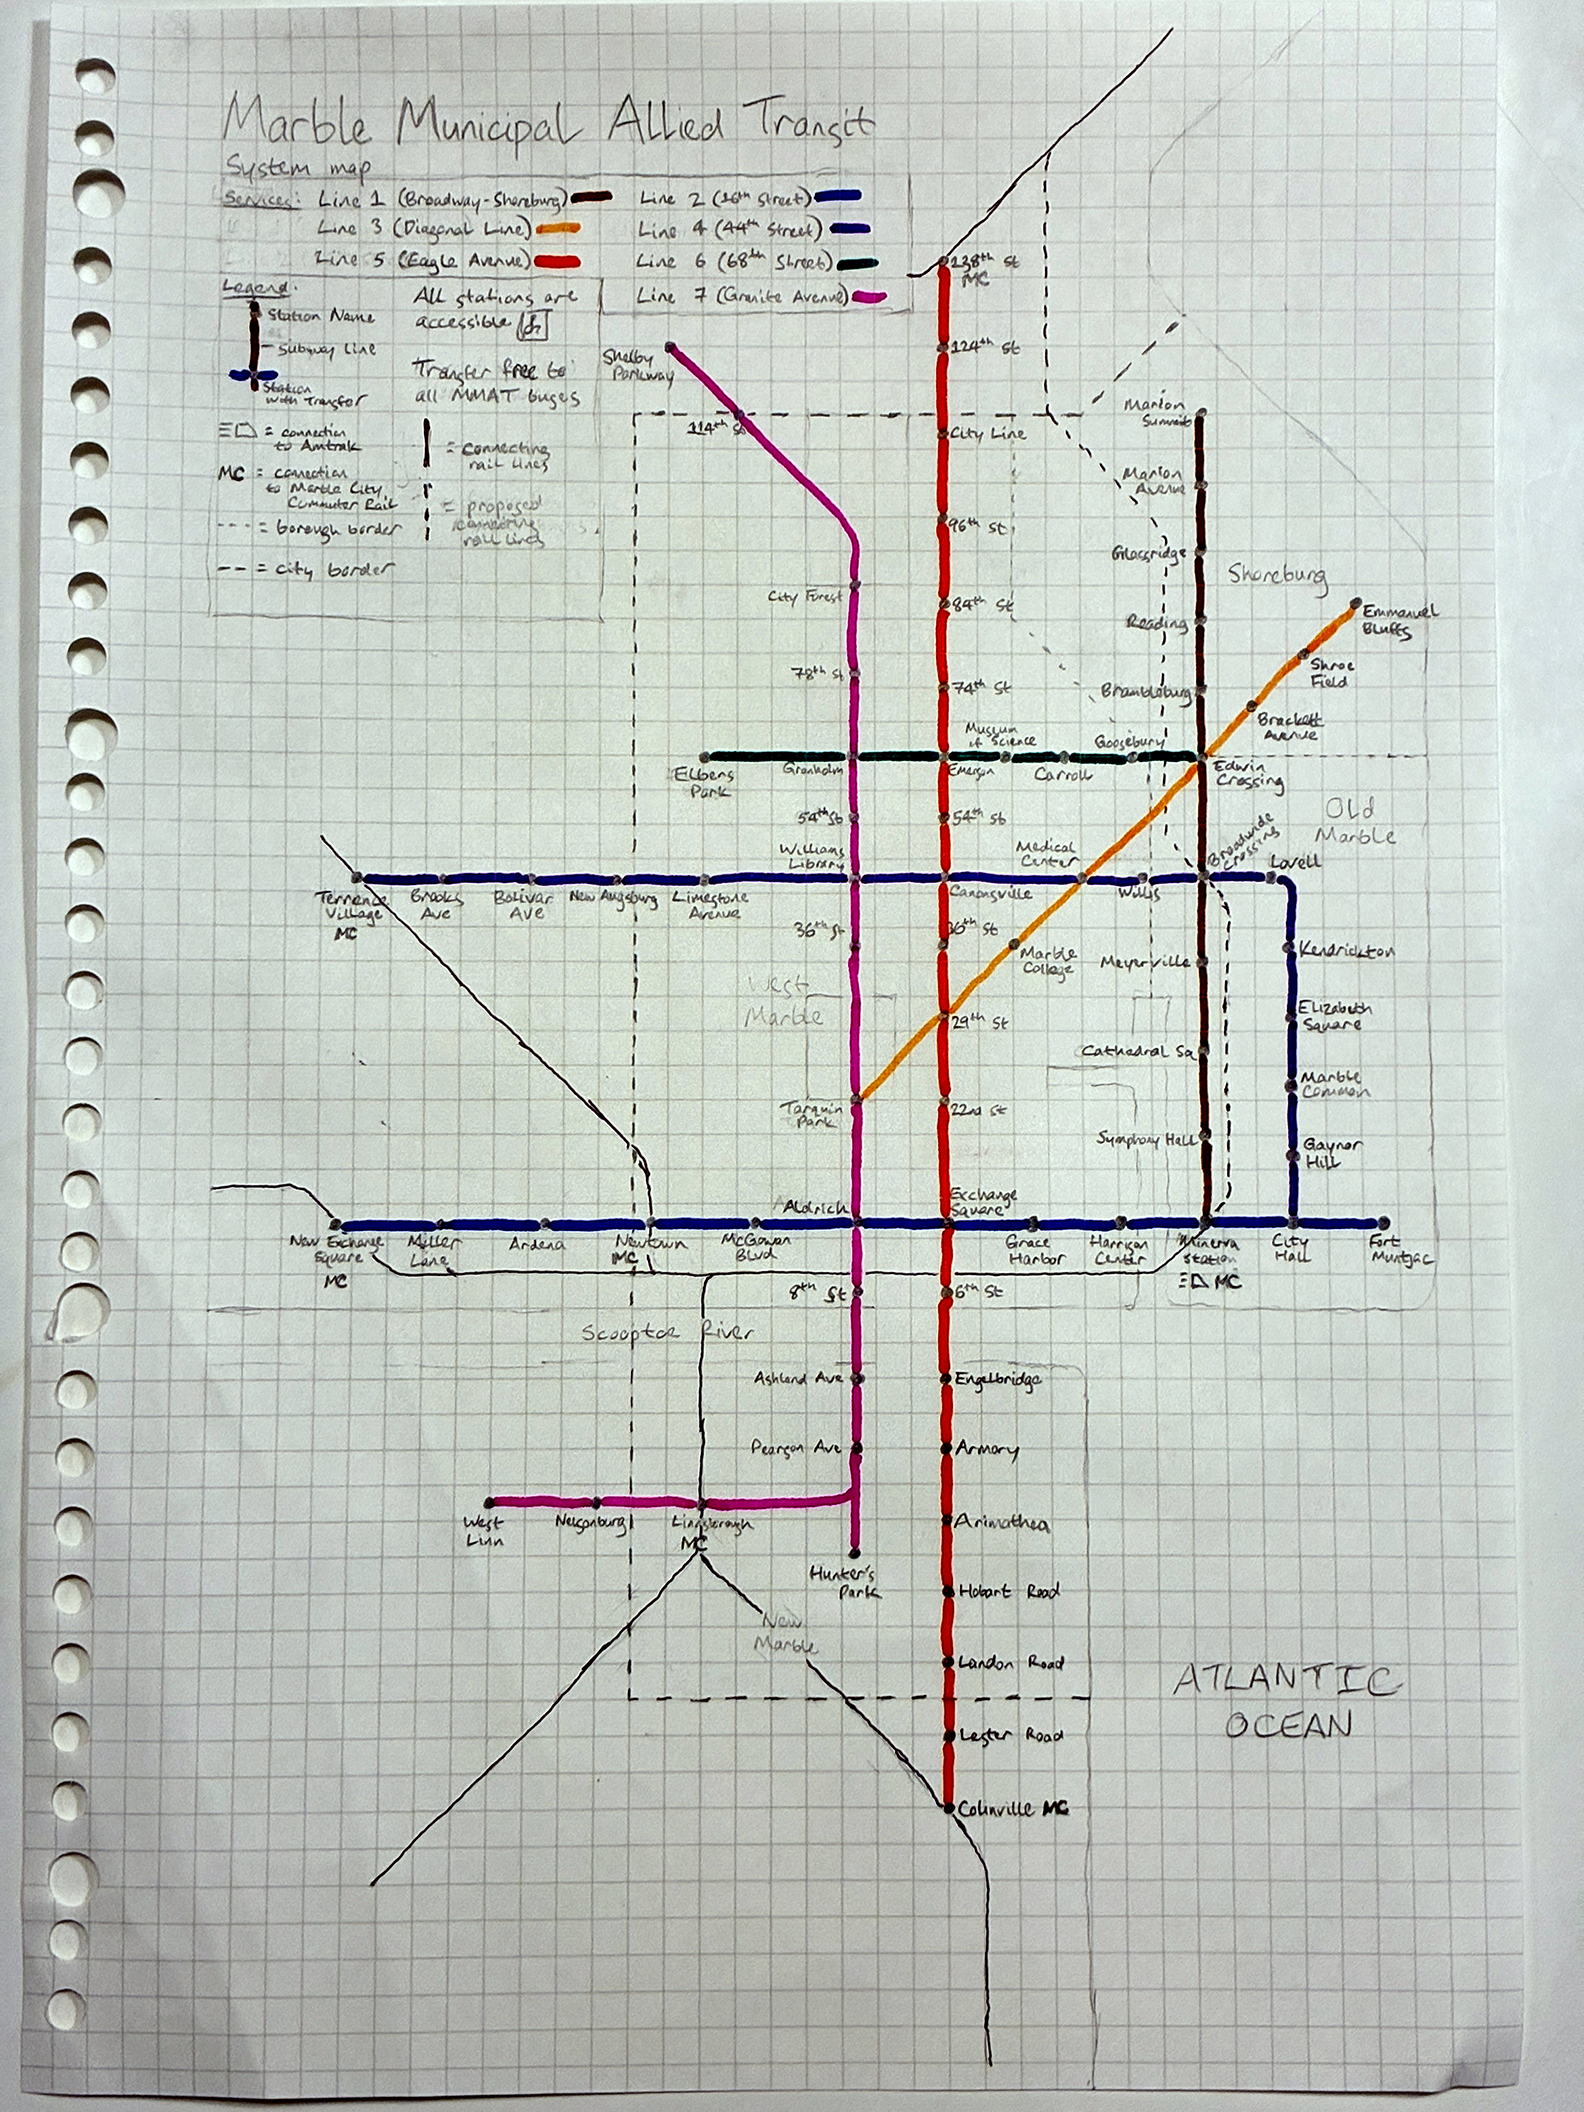 Marble Municipal Allied Transit
System map
Services: Line 1 (Broadway-Shoreburg)
Line 2 (16th Street)
Line 3 (Diagonal Line)
Line 4 (44th Street)
Line 5 (Eagle Avenue)
Line 6 (68th Street)
Line 7 (Granite Avenue)
Legend:
Station Name
Subway Line
Station
with Transfer
= connection
to Amtrak
MC = connection
to Marble City
Commuter Rail
= borough border
= city border
All stations are
accessible
Transfer free to
all MMAT buses
= connecting
rail lines
= proposed
connecting
rail lines
138th St
MC
124th St
City Line
96th St
84th St
74th St
Emerson
54th St
Canonsville
36th St
29th St
22nd St
Exchange
Square
6th St
Engelbridge
Armory
Arimathea
Hobart Road
Landon Road
Lester Road
Colinville MC
Shelby
Parkway
114th St
City Forest
78th St
Granholm
54th St
Williams
Library
36th St
Tarquin
Park
Aldrich
8th St
Ashland Ave
Pearson Ave
Hunter's
Park
West
Linn
Nelsonburg
Linnsborough
MC
Marion
Summit
Marion
Avenue
Glassridge
Reading
Brambleburg
Edwin
Crossing
Broadwide
Crossing
Meyerville
Cathedral Sq
Symphony Hall
Minerva
Station
MC
Emmanuel
Bluffs
Shroe
Field
Brackett
Avenue
Medical
Center
Marble
College
Elbens
Park
Museum
of Science
Carroll
Goosebury
Terrence
Village
MC
Brooks
Ave
Bolivar
Ave
New Augsburg
Limestone
Avenue
Willis
Lovell
Kendrickton
Elizabeth
Square
Marble
Common
Gaynor
Hill
New Exchange
Square
MC
Miller
Lane
Ardena
Newtown
MC
McGowan
Blvd
Grace
Harbor
Harrison
Center
City
Hall
Fort
Muntjac
Shoreburg
Old
Marble
West
Marble
Scooptoe River
New
Marble
ATLANTIC
OCEAN